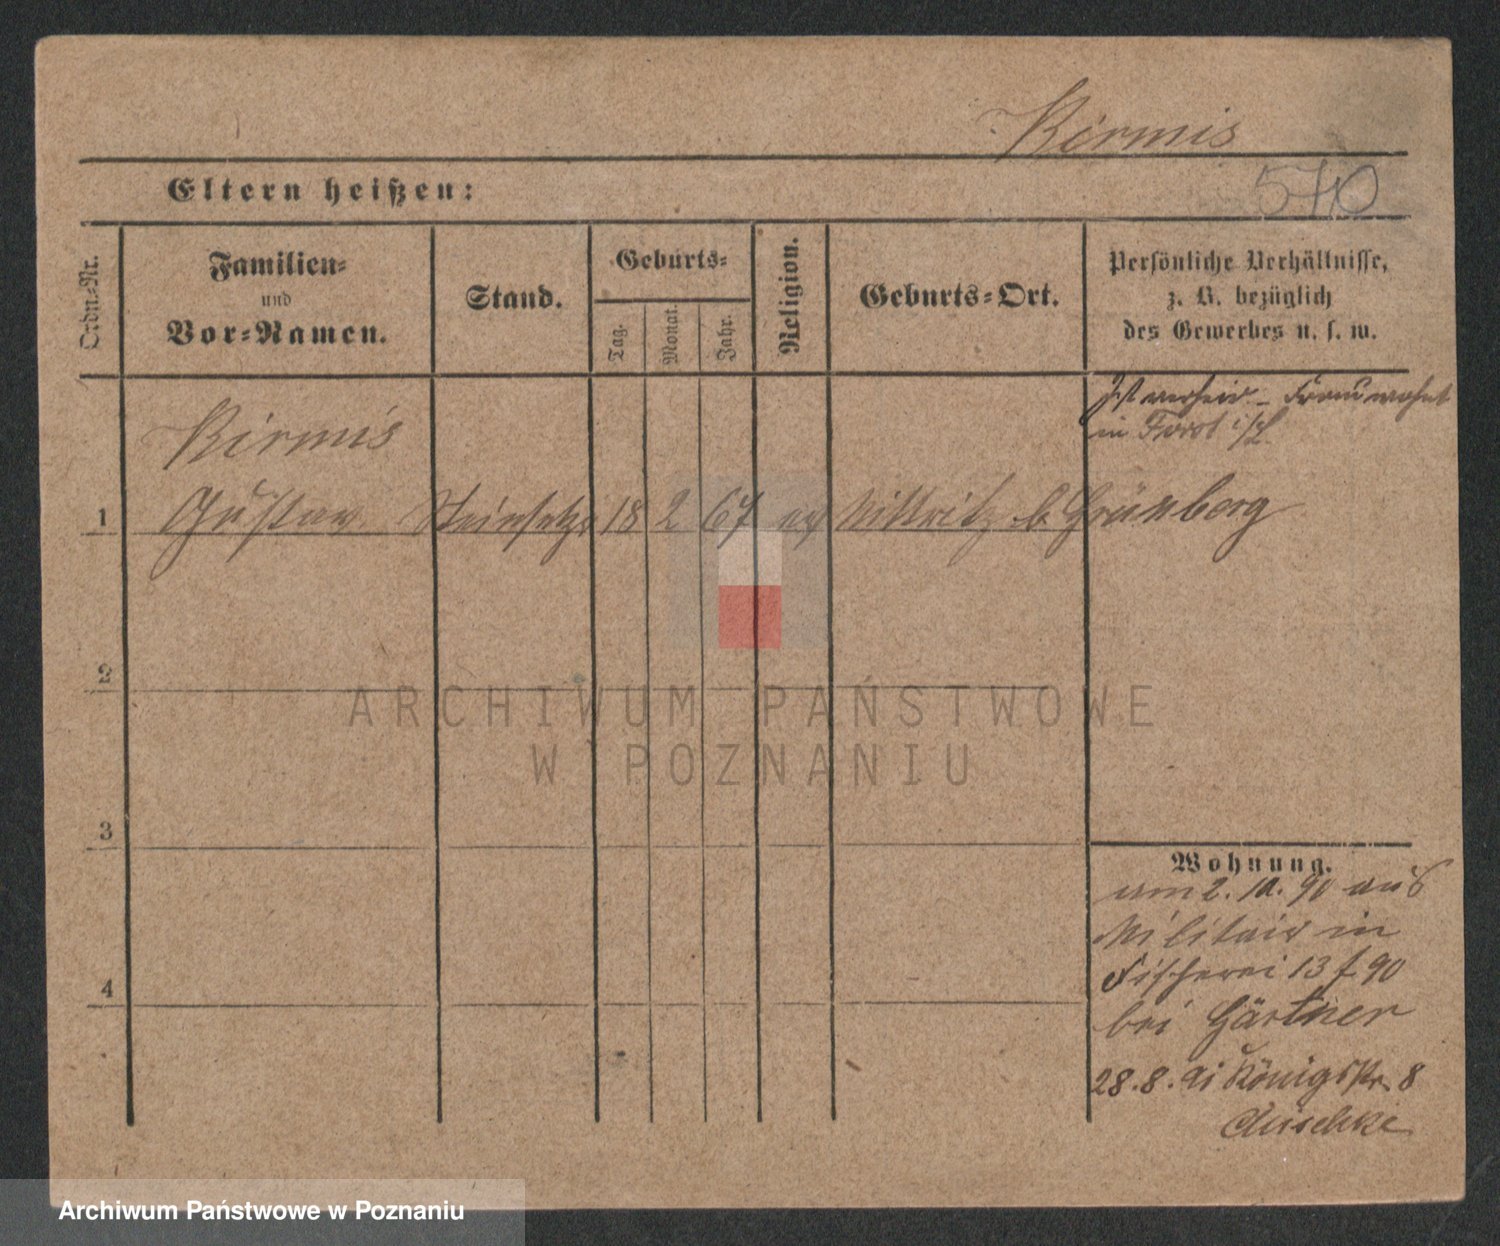 Kirmis
570
Eltern heißen:
Ordn.-Nr.
Familien-
und
Vor-Namen.
Stand.
Geburts-
Tag.
Monat.
Jahr.
Religion.
Geburts-Ort.
Persönliche Verhältnisse,
z. B. bezüglich
des Gewerbes u. s. w.
Ist verheir – Frau wohnt
in Forst i/L
Kirmis
1 Gustav Steinsetzer 18 2 67 ev Nittritz b. Grünberg
2
3
4
Wohnung.
am 2. 10. 90 aus
Militair in
Fischerei 13 f. 90
bei Gärtner
28. 8. 91 Königsstr. 8
ARCHIWUM PAŃSTWOWE
W POZNANIU
Archiwum Państwowe w Poznaniu